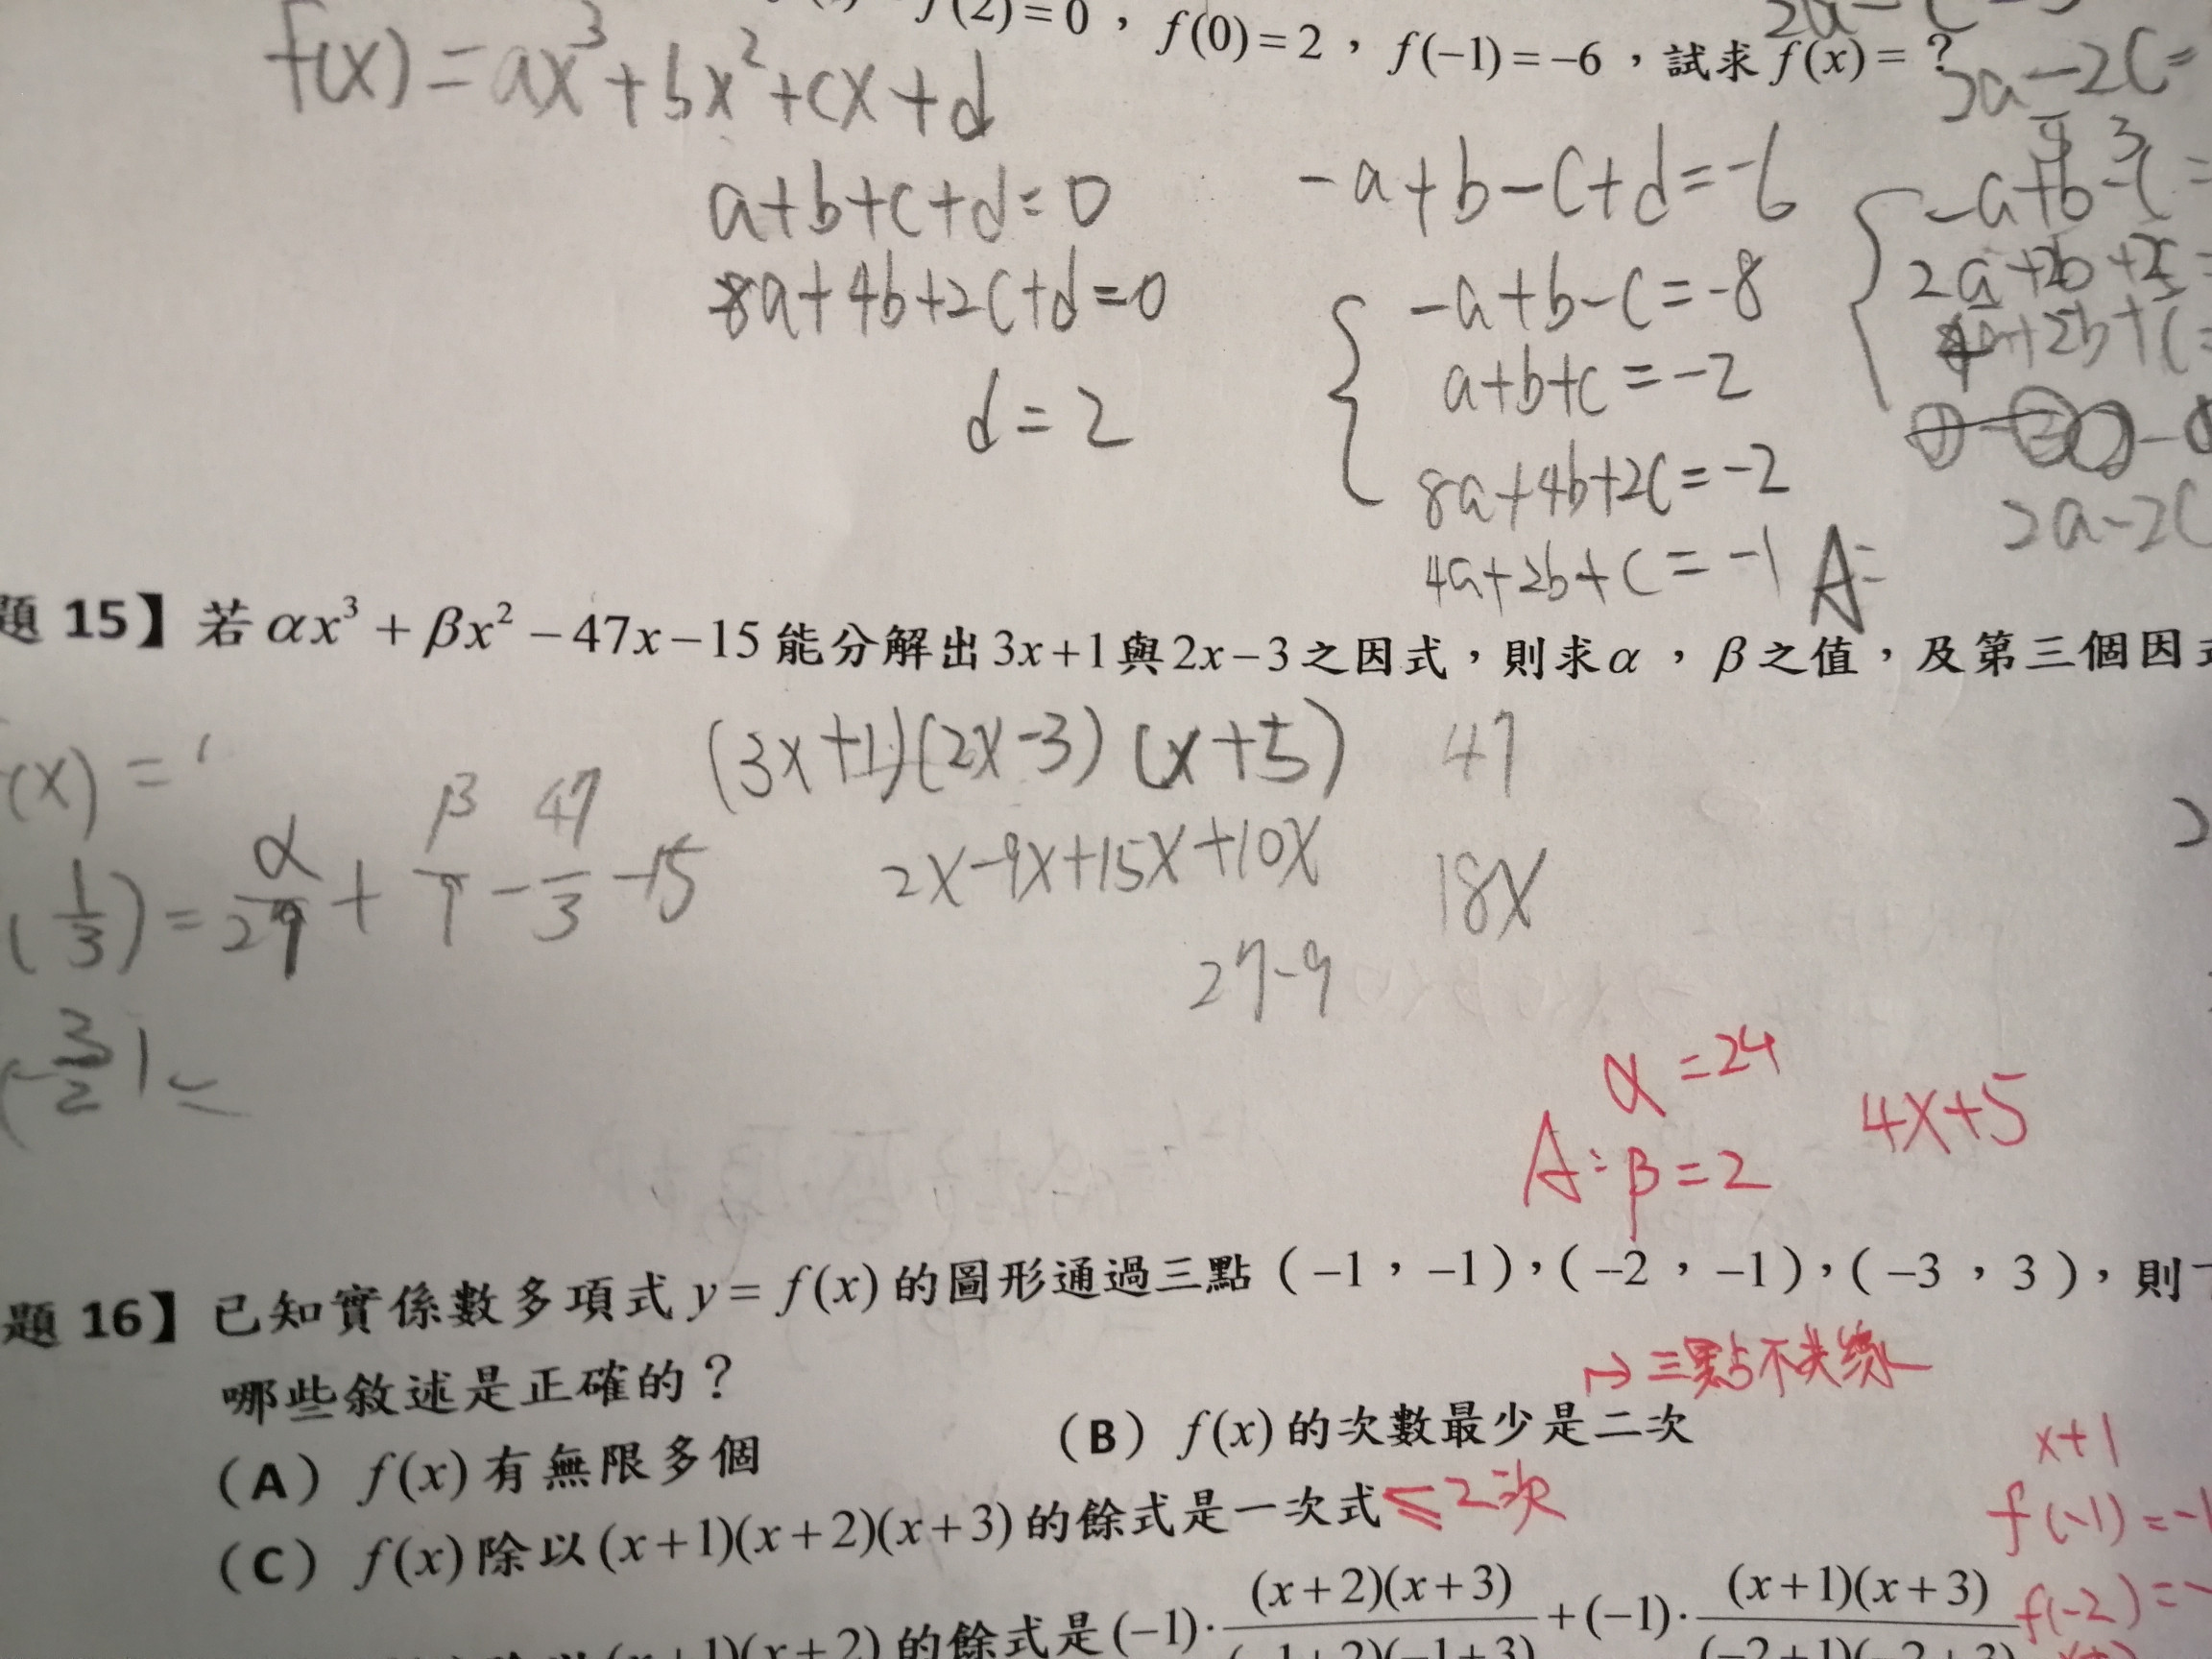 f(2)=0，f(0)=2，f(−1)=−6，試求 f(x)=？
f(x)=ax³+bx²+cx+d
a+b+c+d=0
8a+4b+2c+d=0
d=2
-a+b-c+d=-6
-a+b-c=-8
a+b+c=-2
8a+4b+2c=-2
4a+2b+c=-1
A=
3a-2c=
-a+b-c=
2a+2b+2c=
4a+2b+c=
2a-2c
題 15】若 αx³+βx²−47x−15 能分解出 3x+1 與 2x−3 之因式，則求 α，β 之值，及第三個因
(3x+1)(2x-3)(x+5)
47
(x)=
(1/3)=α/27+β/9-47/3-15
2x-9x+15x+10x
18x
27-9
(-3/2)=
α=24
A:β=2
4x+5
題 16】已知實係數多項式 y=f(x) 的圖形通過三點（−1，−1），（−2，−1），（−3，3），則
哪些敘述是正確的？
→三點不共線
（A）f(x) 有無限多個
（B）f(x) 的次數最少是二次
（C）f(x) 除以 (x+1)(x+2)(x+3) 的餘式是一次式
≤2次
x+1
f(-1)=-1
f(-2)=-
(x+1)(x+2) 的餘式是 (−1)·(x+2)(x+3)/(−1+2)(−1+3)+(−1)·(x+1)(x+3)/(−2+1)(−2+3)